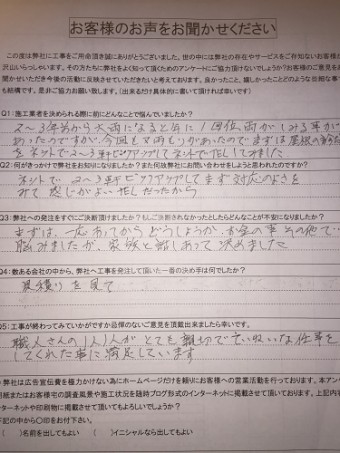 お客様のお声をお聞かせください
この度は弊社に工事をご用命頂き誠にありがとうございました。世の中には弊社の存在やサービスをご存知ないお客様が
沢山いらっしゃいます。その方たちに弊社をよく知って頂くためのアンケートにご協力頂けないでしょうか?お客様のご意見をお
聞かせいただき今後の活動に反映させていただきたいと考えております。良かったこと、嬉しかったことどのような些細な事で
も結構です。是非ご協力お願い致します。(出来るだけ具体的に書いて頂ければ幸いです)
Q1:施工業者を決められる際に前にどんなことで悩んでいましたか?
2〜3年前から大雨になると年に1回位雨がしみる事が
あったのですが、今回も又雨もりがあったのでまずは屋根の
をネットで2〜3軒ピックアップしてネットで
Q2:何がきっかけで弊社をお知りになりましたか?また何故弊社にお問い合わせをしようと思われたのですか?
ネットで、2〜3軒ピックアップしてまず対応のよさを
みて感じがよい だったから
Q3:弊社への発注をすぐにご決断頂けましたか?もしご決断されなかったとしたらどんなことが不安になりましたか?
まずは、一応 ってからどうしようか、お金の事その他で
悩みましたが、家族と話しあって決めました
Q4:数ある会社の中から、弊社へ工事を発注して頂いた一番の決め手は何でしたか?
見積りを見て
Q5:工事が終わってみていかがですか忌憚のないご意見を頂戴出来ましたら幸いです。
職人さんの1人1人がとても親切でていねいな仕事を
してくれた事に満足しています
弊社は広告宣伝費を極力かけない為にホームページだけを頼りにお客様への営業活動を行っております。本アン
用紙またはお客様宅の調査風景や施工状況を随時ブログ形式のインターネットに掲載させて頂いております。上記内容
ンターネットや印刷物に掲載させて頂いてもよろしいでしょうか?
下記の中から〇印をお付け下さい。
( )名前を出してもよい ( )イニシャルなら出してもよい